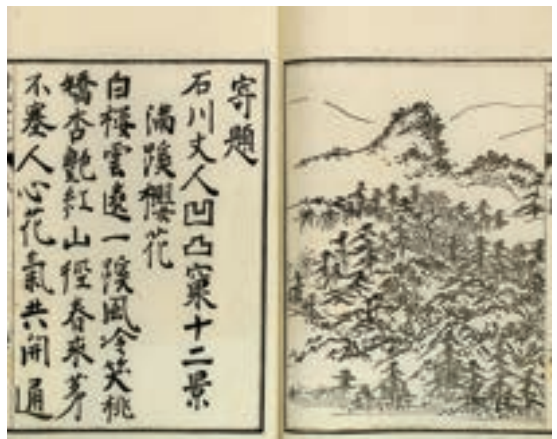 寄題
石川丈人凹凸窠十二景
満蹊櫻花
白櫻雲遶一蹊風冷笑桃
嬌杏艶紅山徑春來茅
不塞人心花氣共開通